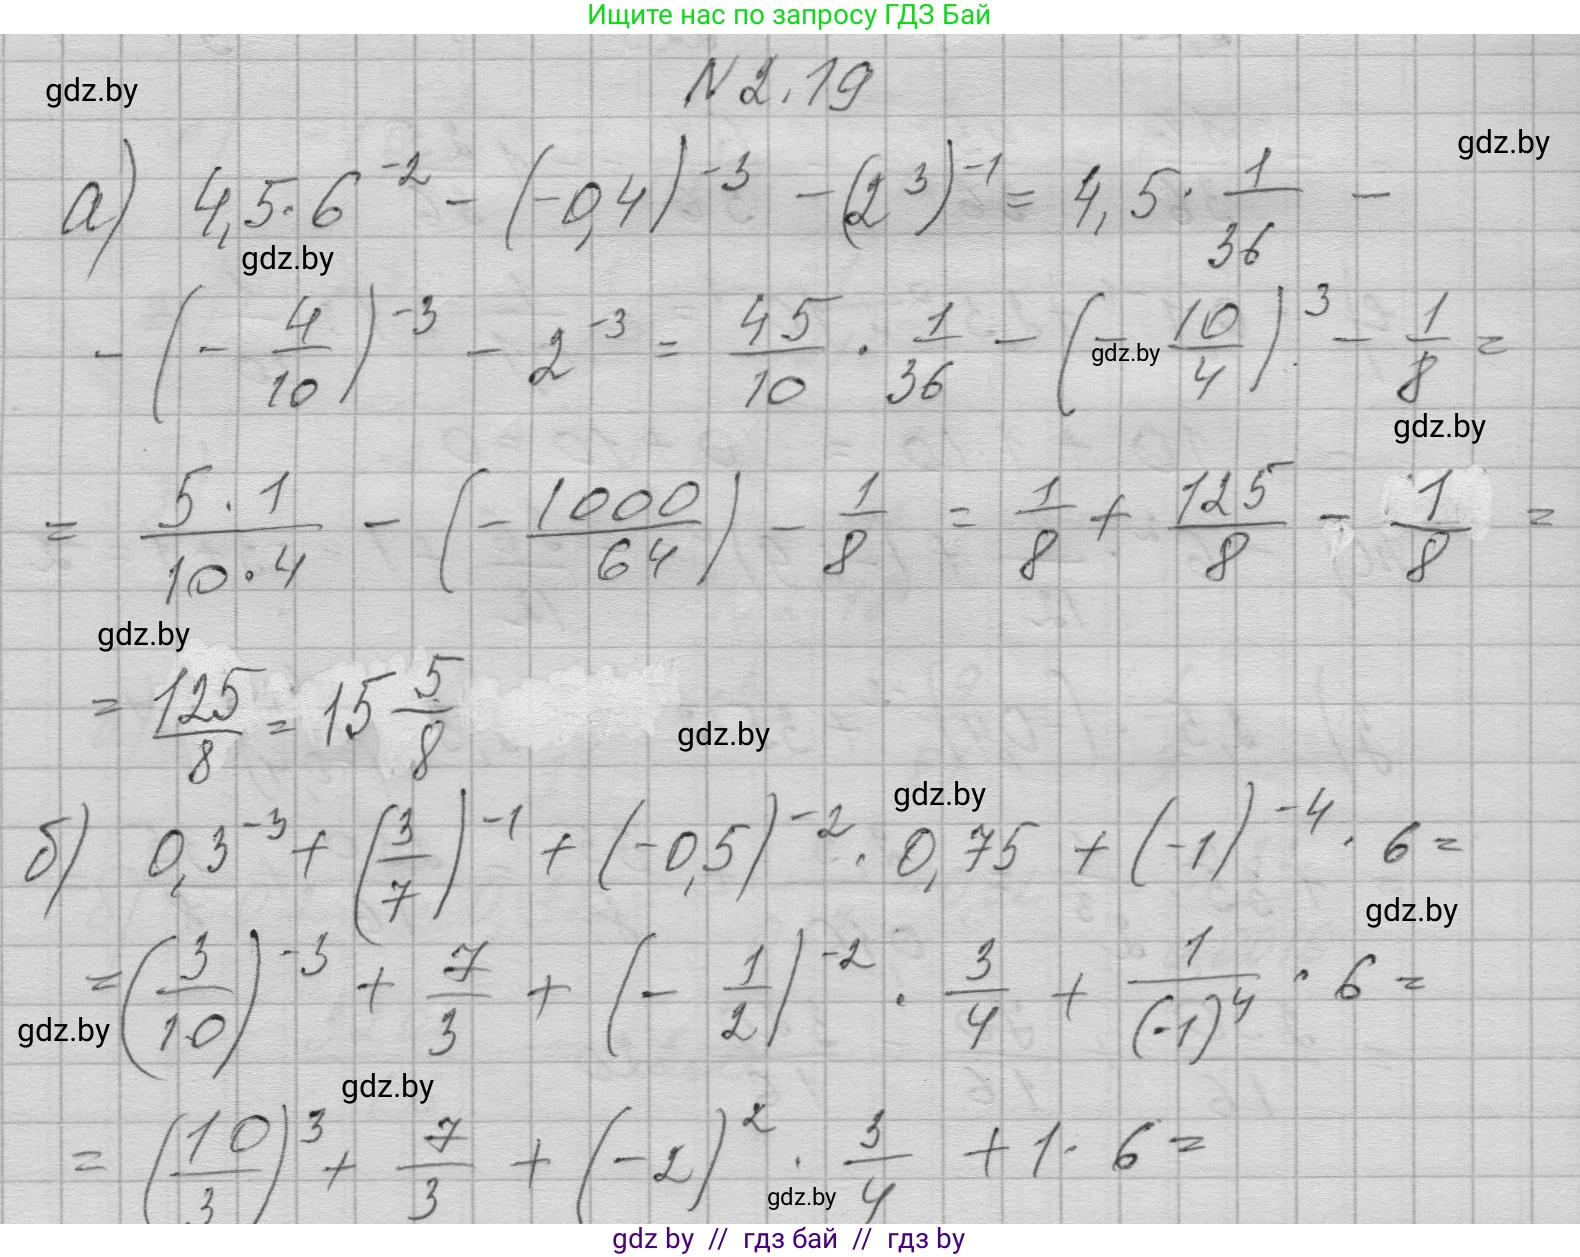 Ищите нас по запросу ГДЗ Бай
N 2.19
gdz.by
gdz.by
а) 4,5·6^{-2} - (-0,4)^{-3} - (2^3)^{-1} = 4,5·\frac{1}{36} -
gdz.by
- (-\frac{4}{10})^{-3} - 2^{-3} = \frac{45}{10} · \frac{1}{36} - (-\frac{10}{4})^3 - \frac{1}{8} =
gdz.by
gdz.by
= \frac{5·1}{10·4} - (-\frac{1000}{64}) - \frac{1}{8} = \frac{1}{8} + \frac{125}{8} - \frac{1}{8} =
gdz.by
= \frac{125}{8} = 15\frac{5}{8}
gdz.by
gdz.by
б) 0,3^{-3} + (\frac{3}{7})^{-1} + (-0,5)^{-2} · 0,75 + (-1)^{-4} · 6 =
gdz.by
= (\frac{3}{10})^{-3} + \frac{7}{3} + (-\frac{1}{2})^{-2} · \frac{3}{4} + \frac{1}{(-1)^4} · 6 =
gdz.by
gdz.by
= (\frac{10}{3})^3 + \frac{7}{3} + (-2)^2 · \frac{3}{4} + 1 · 6 =
gdz.by
gdz by // гдз бай // гдз by